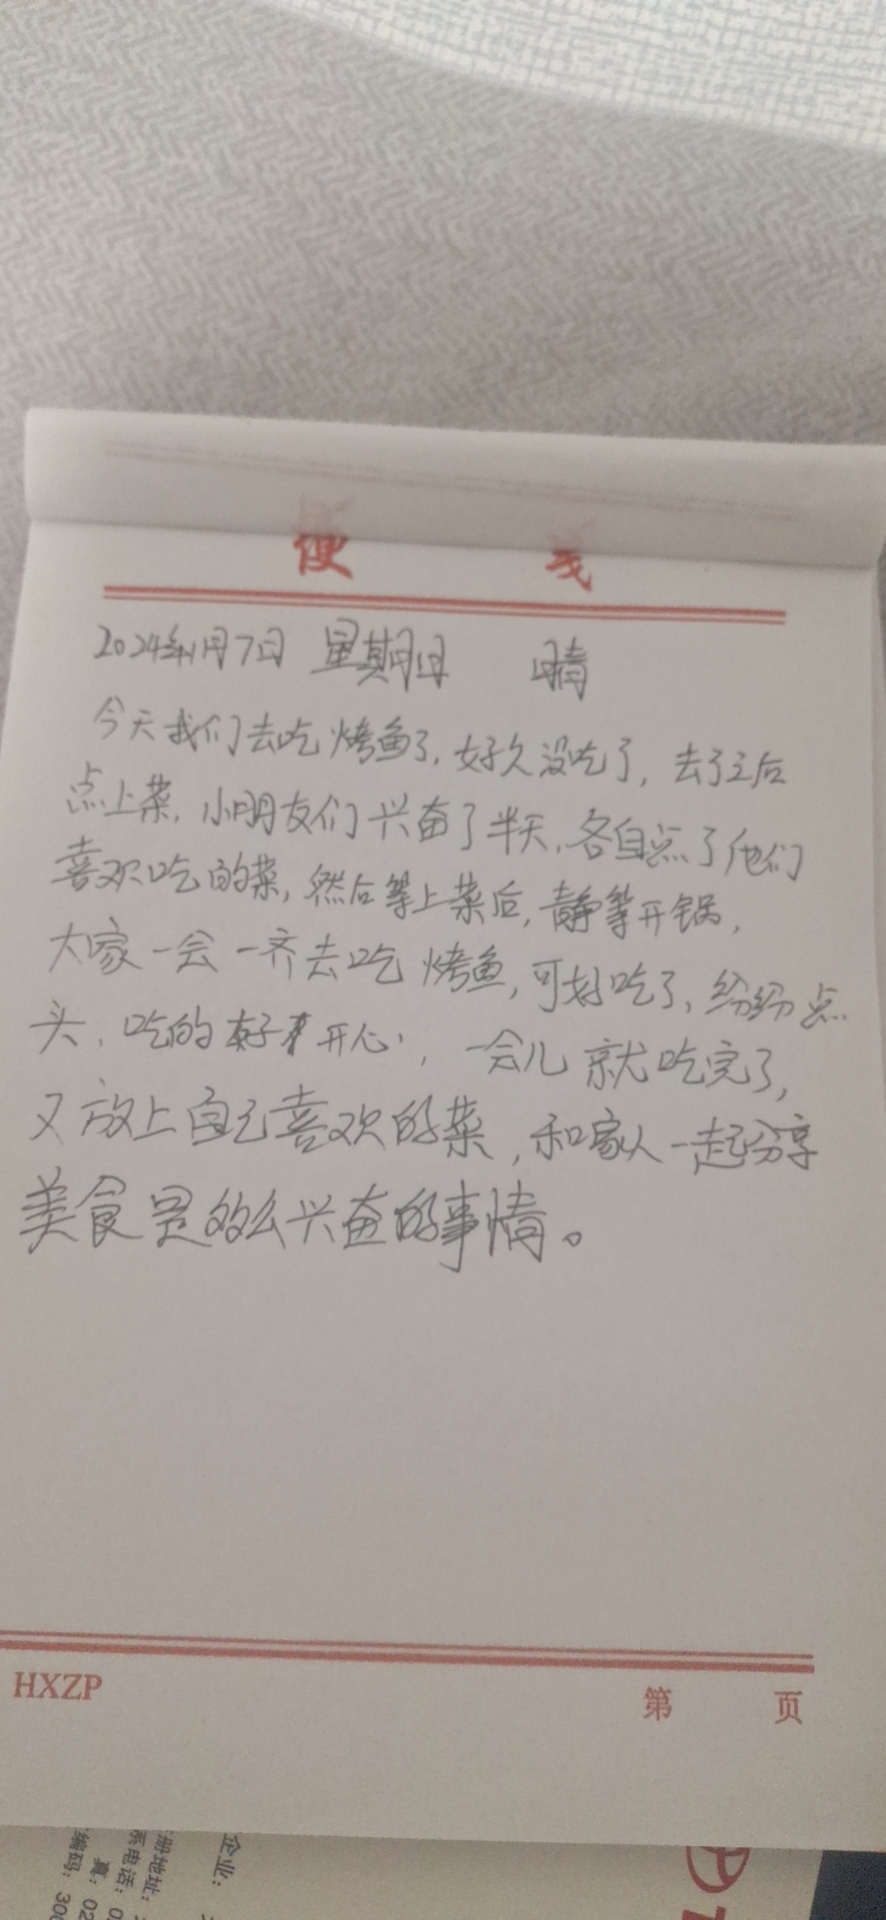 便 笺
2024年1月7日 星期日 晴
今天我们去吃烤鱼了,好久没吃了,去了之后
点上菜,小朋友们兴奋了半天,各自点了他们
喜欢吃的菜,然后等上菜后,静等开锅,
大家一会一齐去吃烤鱼,可好吃了,纷纷点
头,吃的好开心,一会儿就吃完了,
又放上自己喜欢的菜,和家人一起分享
美食是多么兴奋的事情。
HXZP 第 页
企业:
册地址:
系电话:0
真:02
编码:300